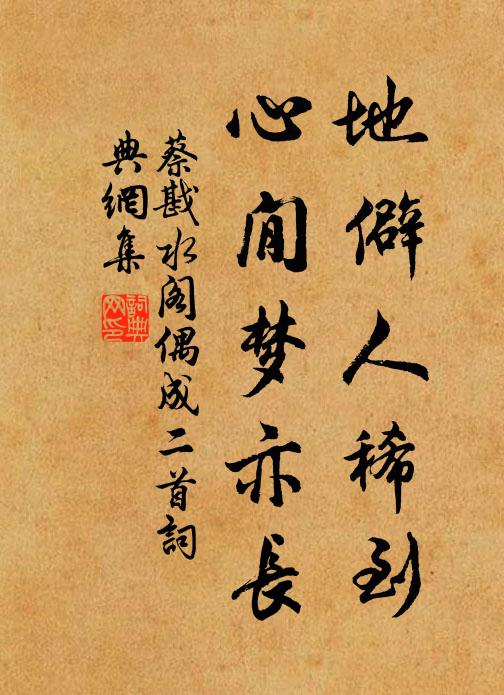 地僻人稀到
心闲梦亦長
蔡戡水阁偶成二首詞
典網集
詞典
网印